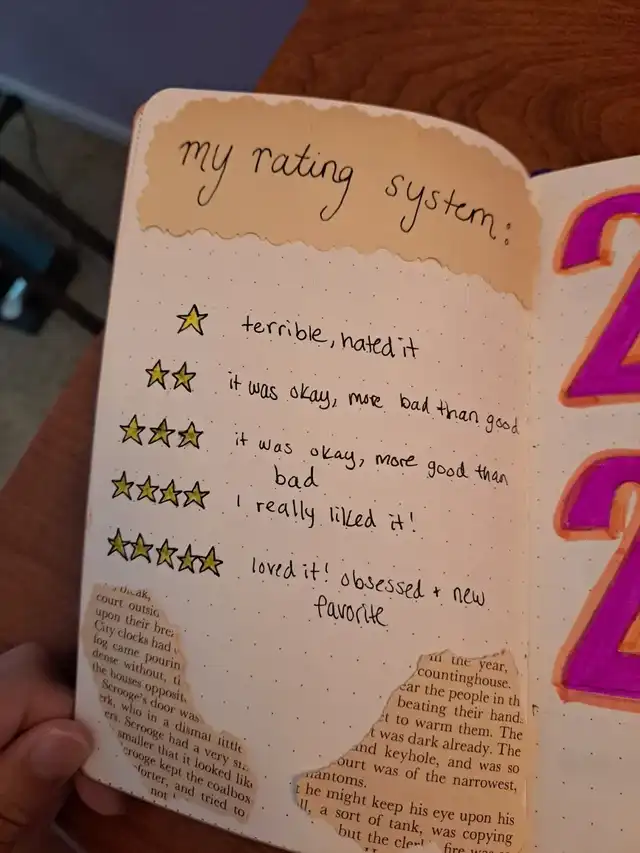 my rating system:
terrible, hated it
it was okay, more bad than good
it was okay, more good than
bad
I really liked it!
loved it! obsessed + new
favorite
court outsid
upon their bre
City clocks had
fog came pourin
dense without, t
the houses opposit
Scrooge's door was
erk, who in a dismal little
ers. Scrooge had a very s
smaller that it looked lik
crooge kept the coalbox
orter, and tried to
not
in the year,
countinghouse.
ear the people in th
beating their hand
t to warm them. The
t was dark already. The
and keyhole, and was so
ourt was of the narrowest,
hantoms.
t he might keep his eye upon his
ll, a sort of tank, was copying
but the cler fire was
2
2